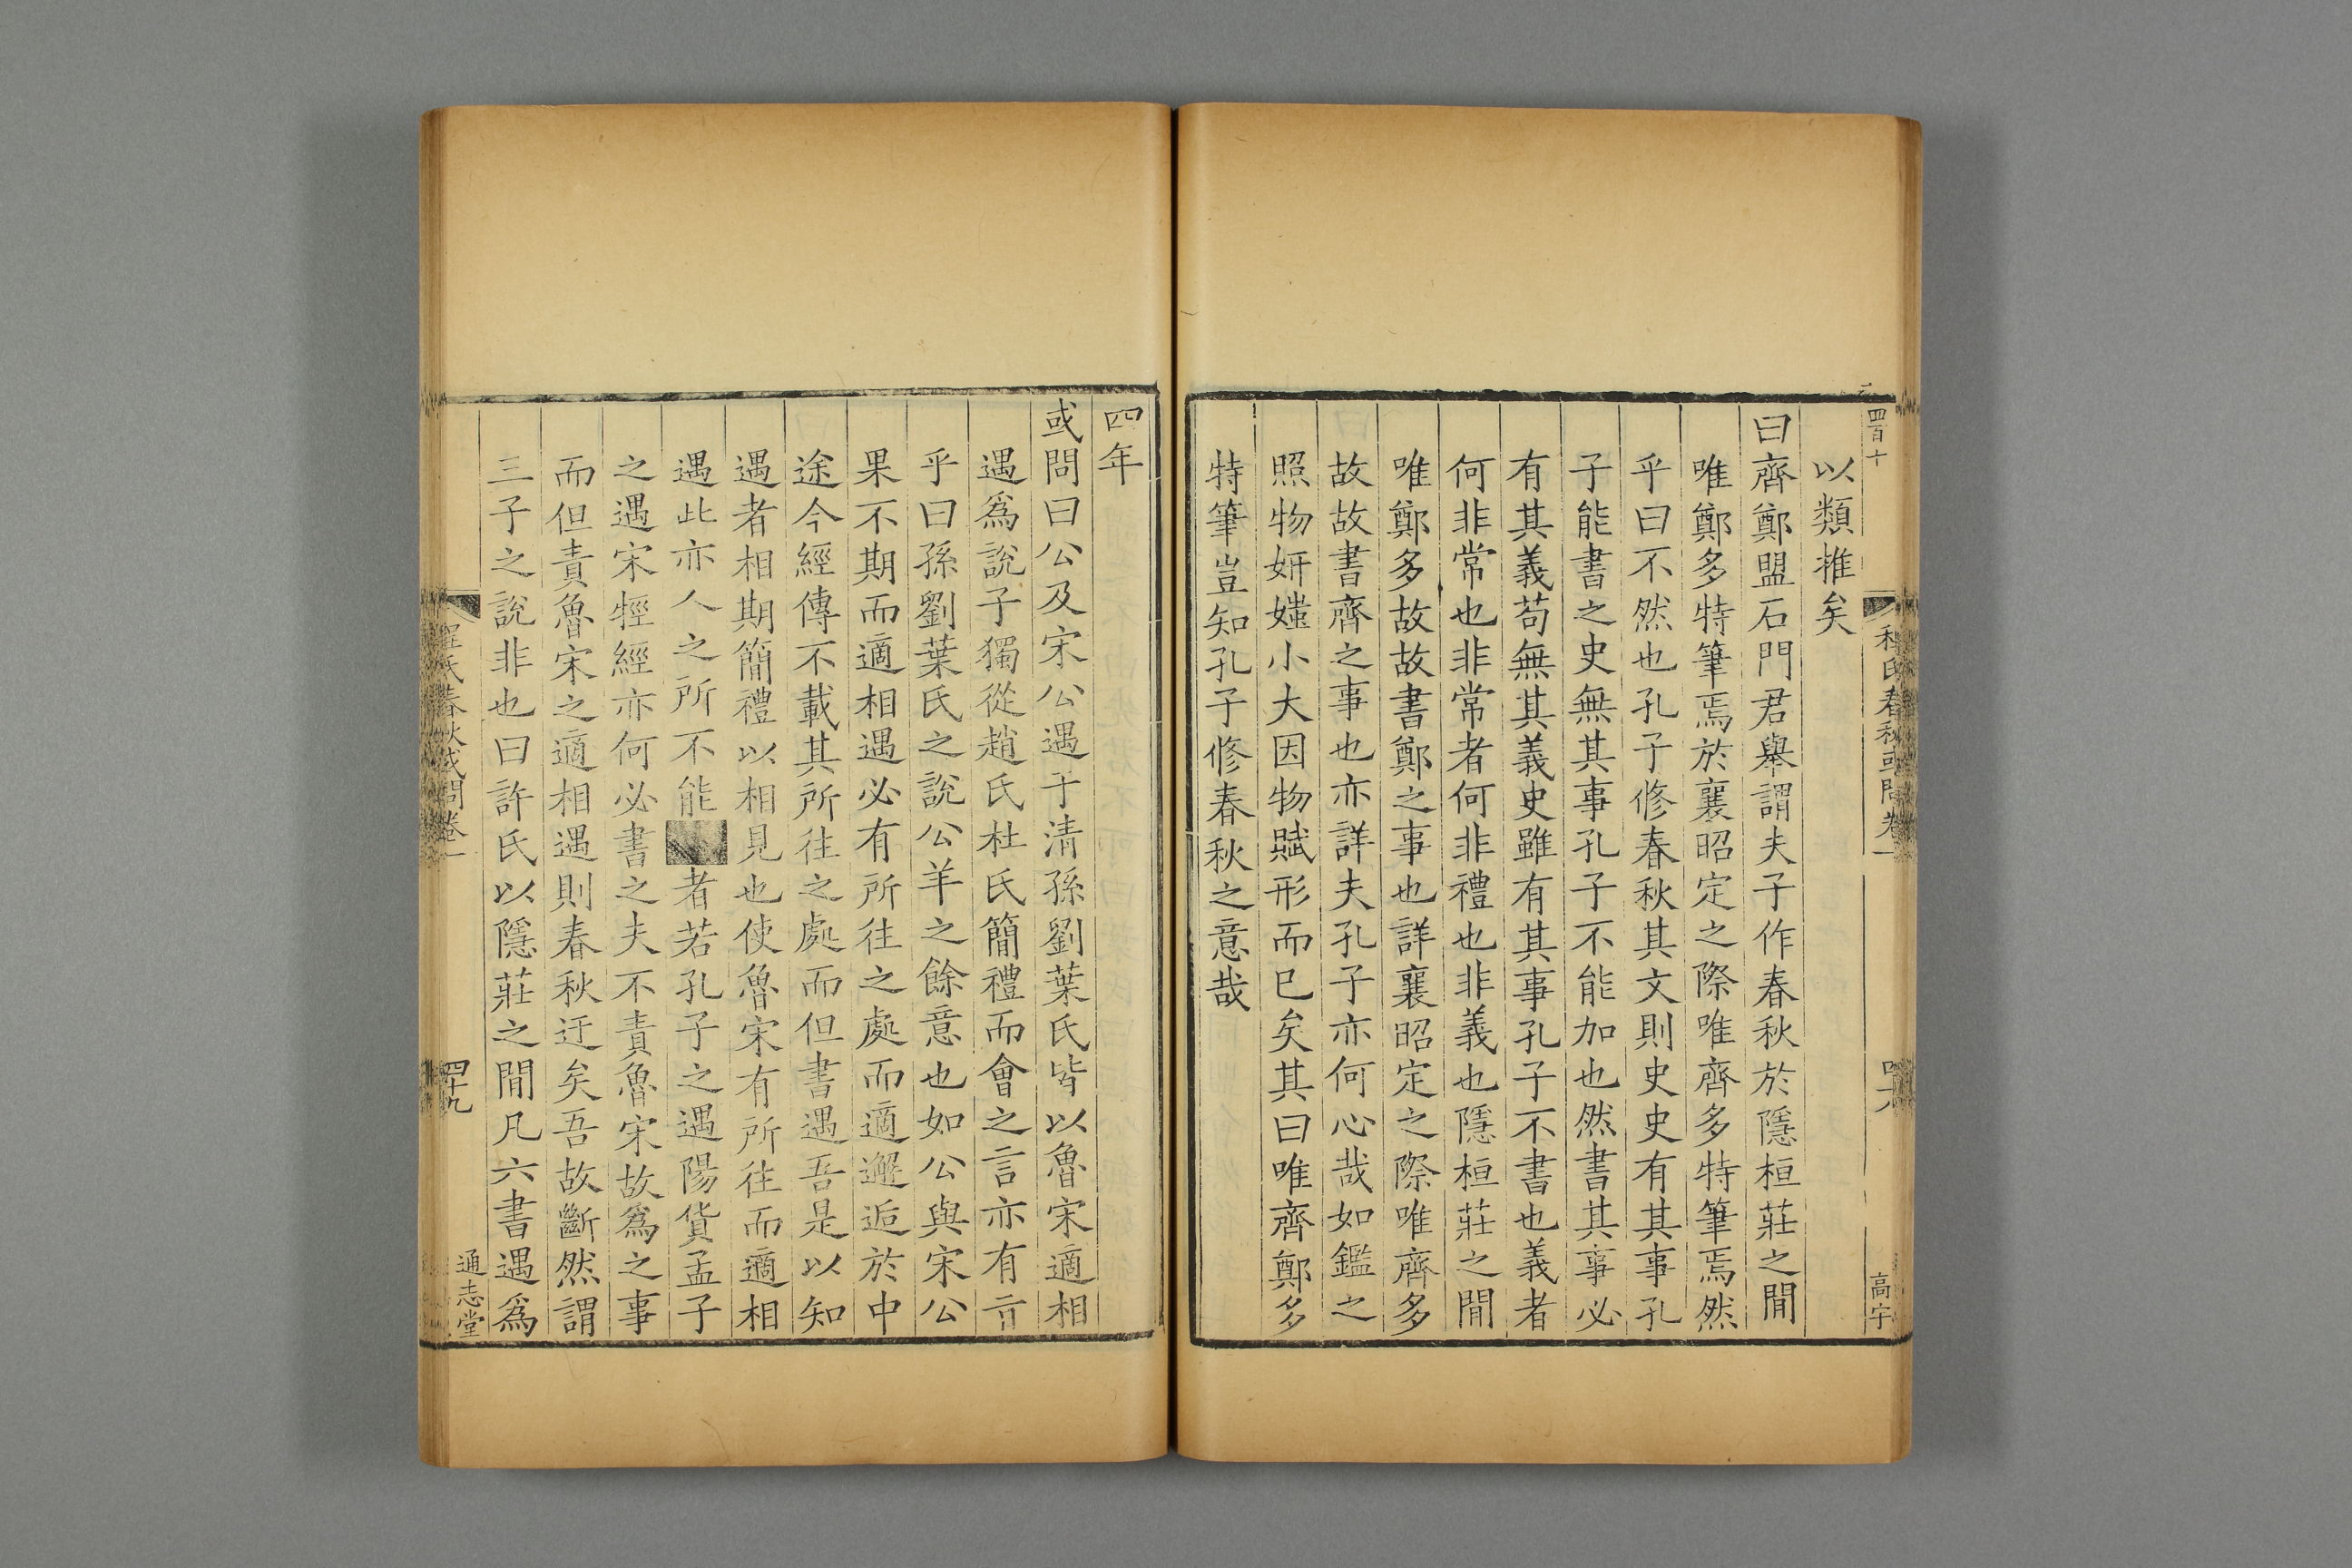 四百十
程氏春秋或問卷一
高字
以類推矣
曰齊鄭盟石門君舉謂夫子作春秋於隱桓莊之閒
唯鄭多特筆焉於襄昭定之際唯齊多特筆焉然
乎曰不然也孔子修春秋其文則史史有其事孔
子能書之史無其事孔子不能加也然書其事必
有其義苟無其義史雖有其事孔子不書也義者
何非常也非常者何非禮也非義也隱桓莊之閒
唯鄭多故故書鄭之事也詳襄昭定之際唯齊多
故故書齊之事也亦詳夫孔子亦何心哉如鑑之
照物妍媸小大因物賦形而已矣其曰唯齊鄭多
特筆豈知孔子修春秋之意哉
四年
或問曰公及宋公遇于清孫劉葉氏皆以魯宋適相
遇爲說子獨從趙氏杜氏簡禮而會之言亦有
乎曰孫劉葉氏之說公羊之餘意也如公與宋公
果不期而適相遇必有所往之處而適邂逅於中
途今經傳不載其所往之處而但書遇吾是以知
遇者相期簡禮以相見也使魯宋有所往而適相
遇此亦人之所不能者若孔子之遇陽貨孟子
之遇宋牼經亦何必書之夫不責魯宋故爲之事
而但責魯宋之適相遇則春秋迂矣吾故斷然謂
三子之說非也曰許氏以隱莊之閒凡六書遇爲
程氏春秋或問卷一
四十九
通志堂